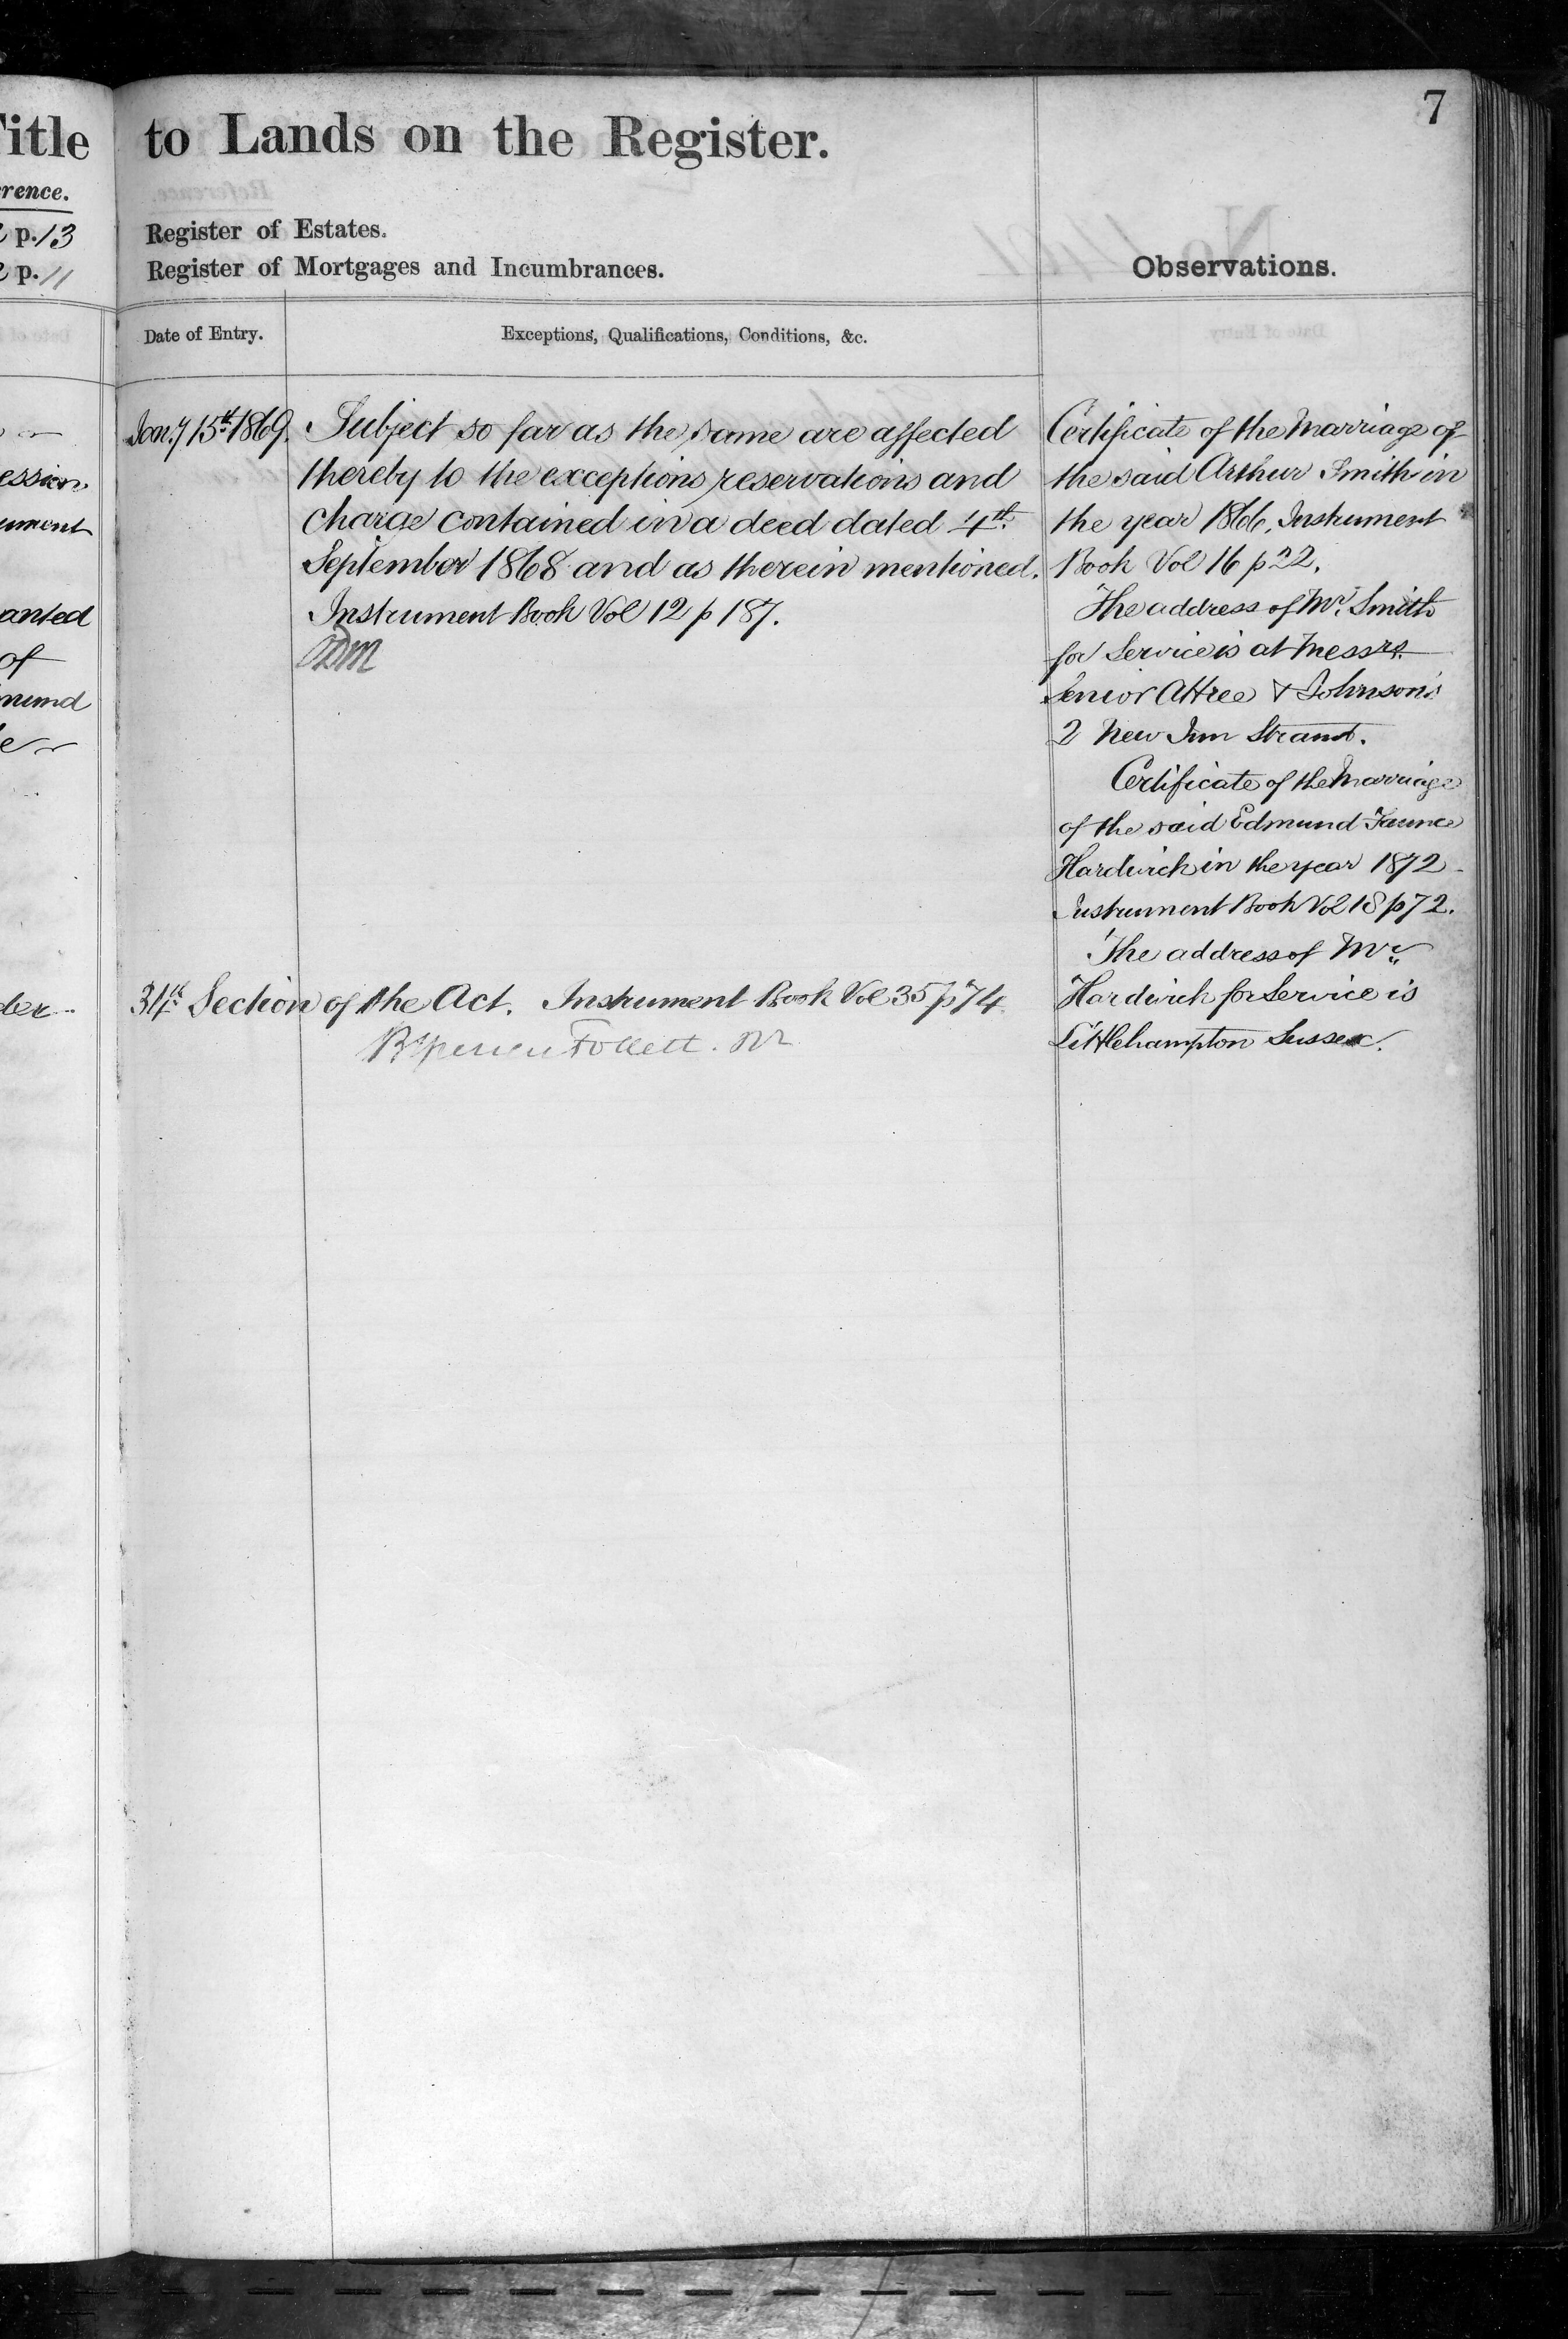 7
to Lands on the Register.
Register of Estates.
Register of Mortgages and Incumbrances.
Observations.
Date of Entry.
Exceptions, Qualifications, Conditions, &c.
Jan.y 15th 1869.
Subject so far as the same are affected
thereby to the exceptions reservations and
charge contained in a deed dated 4th
September 1868 and as therein mentioned.
Instrument Book Vol 12 p 187.
34th Section of the Act. Instrument Book Vol 35 p 74
Follett
Certificate of the Marriage of
the said Arthur Smith in
the year 1866, Instrument
Book Vol 16 p 22.
The address of Mr. Smith
for Service is at Messrs.
Senior Attree & Johnson's
2 New Inn Strand.
Certificate of the Marriage
of the said Edmund Faunce
Hardwick in the year 1872
Instrument Book Vol 18 p 72.
The address of Mr
Hardwick for Service is
Littlehampton Sussex.
itle
rence.
p. 13
p. 11
ession
ument
anted
of
mund